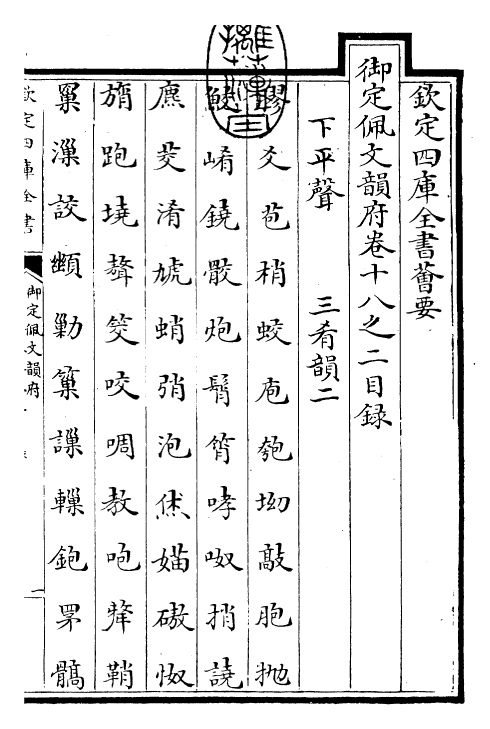 欽定四庫全書薈要
御定佩文韻府卷十八之二目錄
下平聲 三肴韻二
膠爻苞梢蛟庖匏坳敲胞拋
鮫崤鐃骰炮髾筲哮呶捎譊
庶茭淆虓蛸弰泡烋媌磝怓
䈰跑墝謷筊咬啁教咆犛鞘
窠漅詨顤勦窠謈轈鉋罞髇
欽定四庫全書
御定佩文韻府